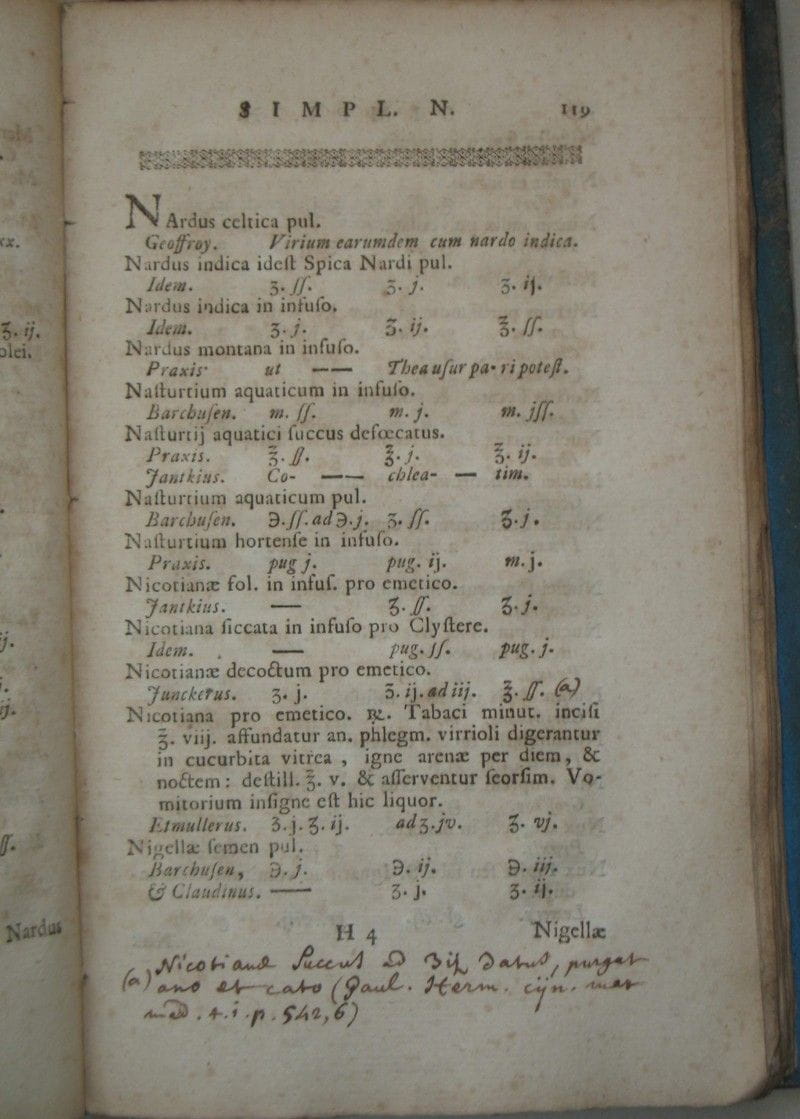 xx.
ʒ. ij.
olei.
ij.
Nardus
SIMPL. N. 119
NArdus celtica pul.
Geoffroy. Virium earumdem cum nardo indica.
Nardus indica ideſt Spica Nardi pul.
Idem. ʒ. ſſ. ʒ. j. ʒ. ij.
Nardus indica in infuſo.
Idem. ʒ. j. ʒ. ij. ℥. ſſ.
Nardus montana in infuſo.
Praxis ut —— Thea uſurpa-ri poteſt.
Naſturtium aquaticum in infuſo.
Barchuſen. m. ſſ. m. j. m. jſſ.
Naſturtij aquatici ſuccus defœcatus.
Praxis. ℥. ſſ. ℥. j. ℥. ij.
Jantkius. Co- —— chlea- — tim.
Naſturtium aquaticum pul.
Barchuſen. ℈. ſſ. ad ℈. j. ʒ. ſſ. ʒ. j.
Naſturtium hortenſe in infuſo.
Praxis. pug j. pug. ij. m. j.
Nicotianæ fol. in infuſ. pro emetico.
Jantkius. — ʒ. ſſ. ʒ. j.
Nicotiana ſiccata in infuſo pro Clyſtere.
Idem. — pug. ſſ. pug. j.
Nicotianæ decoctum pro emetico.
Junckerus. ʒ. j. ʒ. ij. ad iij. ℥. ſſ. (a)
Nicotiana pro emetico. ℞. Tabaci minut. inciſi
℥. viij. affundatur an. phlegm. virrioli digerantur
in cucurbita vitrea, igne arenæ per diem, &
noctem: deſtill. ℥. v. & aſſerventur ſeorſim. Vo-
mitorium inſigne eſt hic liquor.
Etmullerus. ʒ. j. ʒ. ij. ad ʒ. jv. ʒ. vj.
Nigellæ ſemen pul.
Barchuſen, ℈. j. ℈. ij. ℈. iij.
& Claudinus. — ʒ. j. ʒ. ij.
H 4 Nigellæ
(a) Nicotianæ Succus ad ʒij Datus, purgat
ano et cato (Paul. Herm. cyn. mat
med. t. i. p. 542, 6)